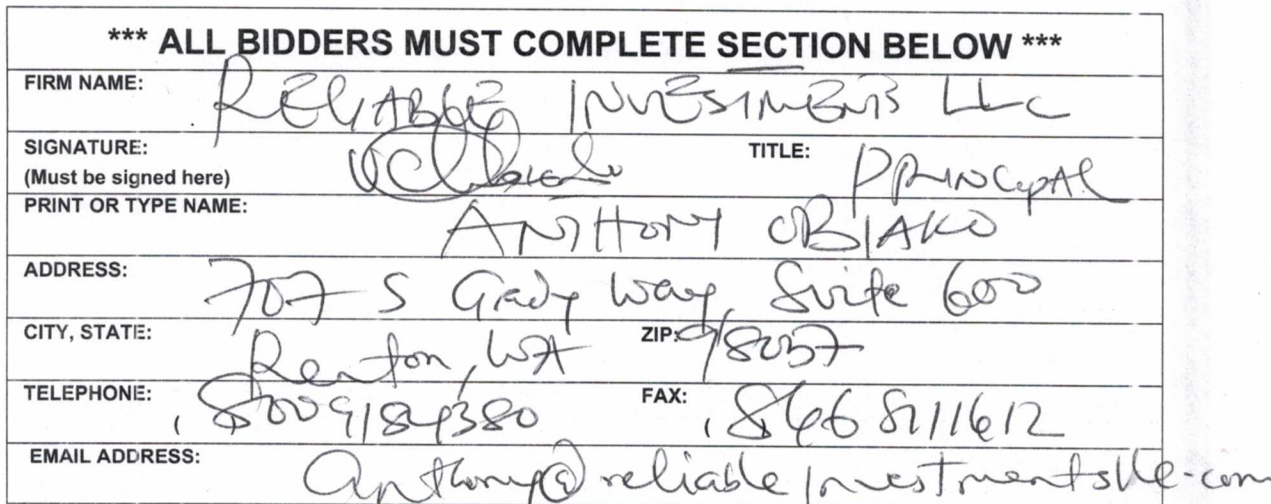 *** ALL BIDDERS MUST COMPLETE SECTION BELOW ***
FIRM NAME: RELIABLE INVESTMENTS LLC
SIGNATURE: TITLE: PRINCIPAL
(Must be signed here)
PRINT OR TYPE NAME: ANTHONY OBIAKO
ADDRESS: 707 S Grady Way, Suite 600
CITY, STATE: Renton, WA ZIP: 98057
TELEPHONE: 8009184380 FAX: 8668111612
EMAIL ADDRESS: anthony@reliableinvestmentsllc.com